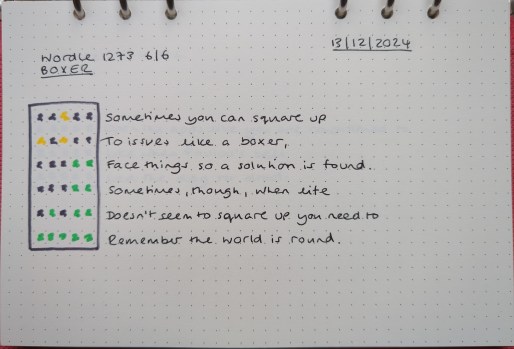 13/12/2024
Wordle 1273 6/6
BOXER
Sometimes you can square up
To issues like a boxer,
Face things so a solution is found.
Sometimes, though, when life
Doesn't seem to square up you need to
Remember the world is round.